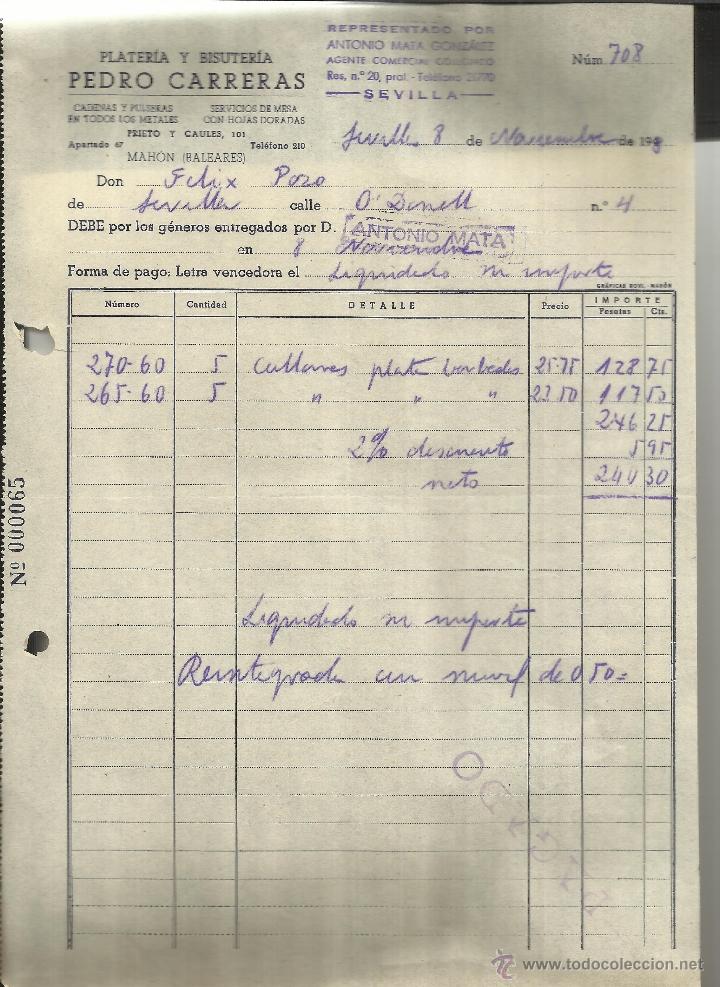 PLATERÍA Y BISUTERÍA
PEDRO CARRERAS
CADENAS Y PULSERAS
EN TODOS LOS METALES
SERVICIOS DE MESA
CON HOJAS DORADAS
PRIETO Y CAULES, 101
Apartado 67 Teléfono 210
MAHÓN (BALEARES)
REPRESENTADO POR
ANTONIO MATA GONZÁLEZ
AGENTE COMERCIAL COLEGIADO
Res, n.º 20, pral. - Teléfono
SEVILLA
Núm. 708
Sevilla 8 de Noviembre de 19
Don Felix Pozo
de Sevilla calle O'Donell n.º 4
DEBE por los géneros entregados por D. ANTONIO MATA
en 8 Noviembre
Forma de pago: Letra vencedora el Liquidado su importe
GRÁFICAS ROVI. - MAHÓN
Número Cantidad DETALLE Precio IMPORTE
Pesetas Cts.
270-60 5 Collares plata 25.75 128 75
265-60 5 " " " 23.50 117 50
246 25
2% descuento 5 95
neto 240 30
Liquidado su importe
Reintegrada un movil de 0,50=
Nº 000065
PAGADO
www.todocoleccion.net